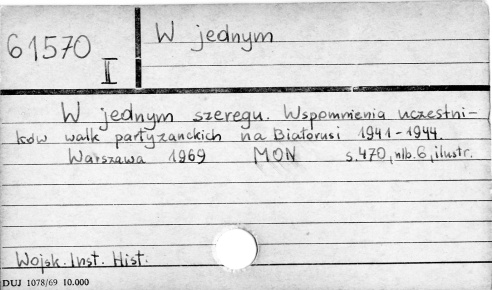 61570
II
W jednym
W jednym szeregu. Wspomnienia uczestni-
ków walk partyzanckich na Białorusi 1941-1944.
Warszawa 1969 MON s.470, nlb.6, ilustr.
Wojsk. Inst. Hist.
DUJ 1078/69 10.000